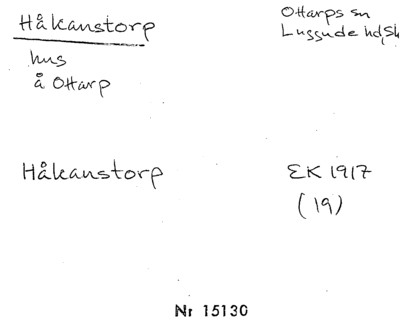 Håkanstorp
Ottarps sn
Luggude hd, Sk
hus
å Ottarp
Håkanstorp
EK 1917
(19)
Nr 15130